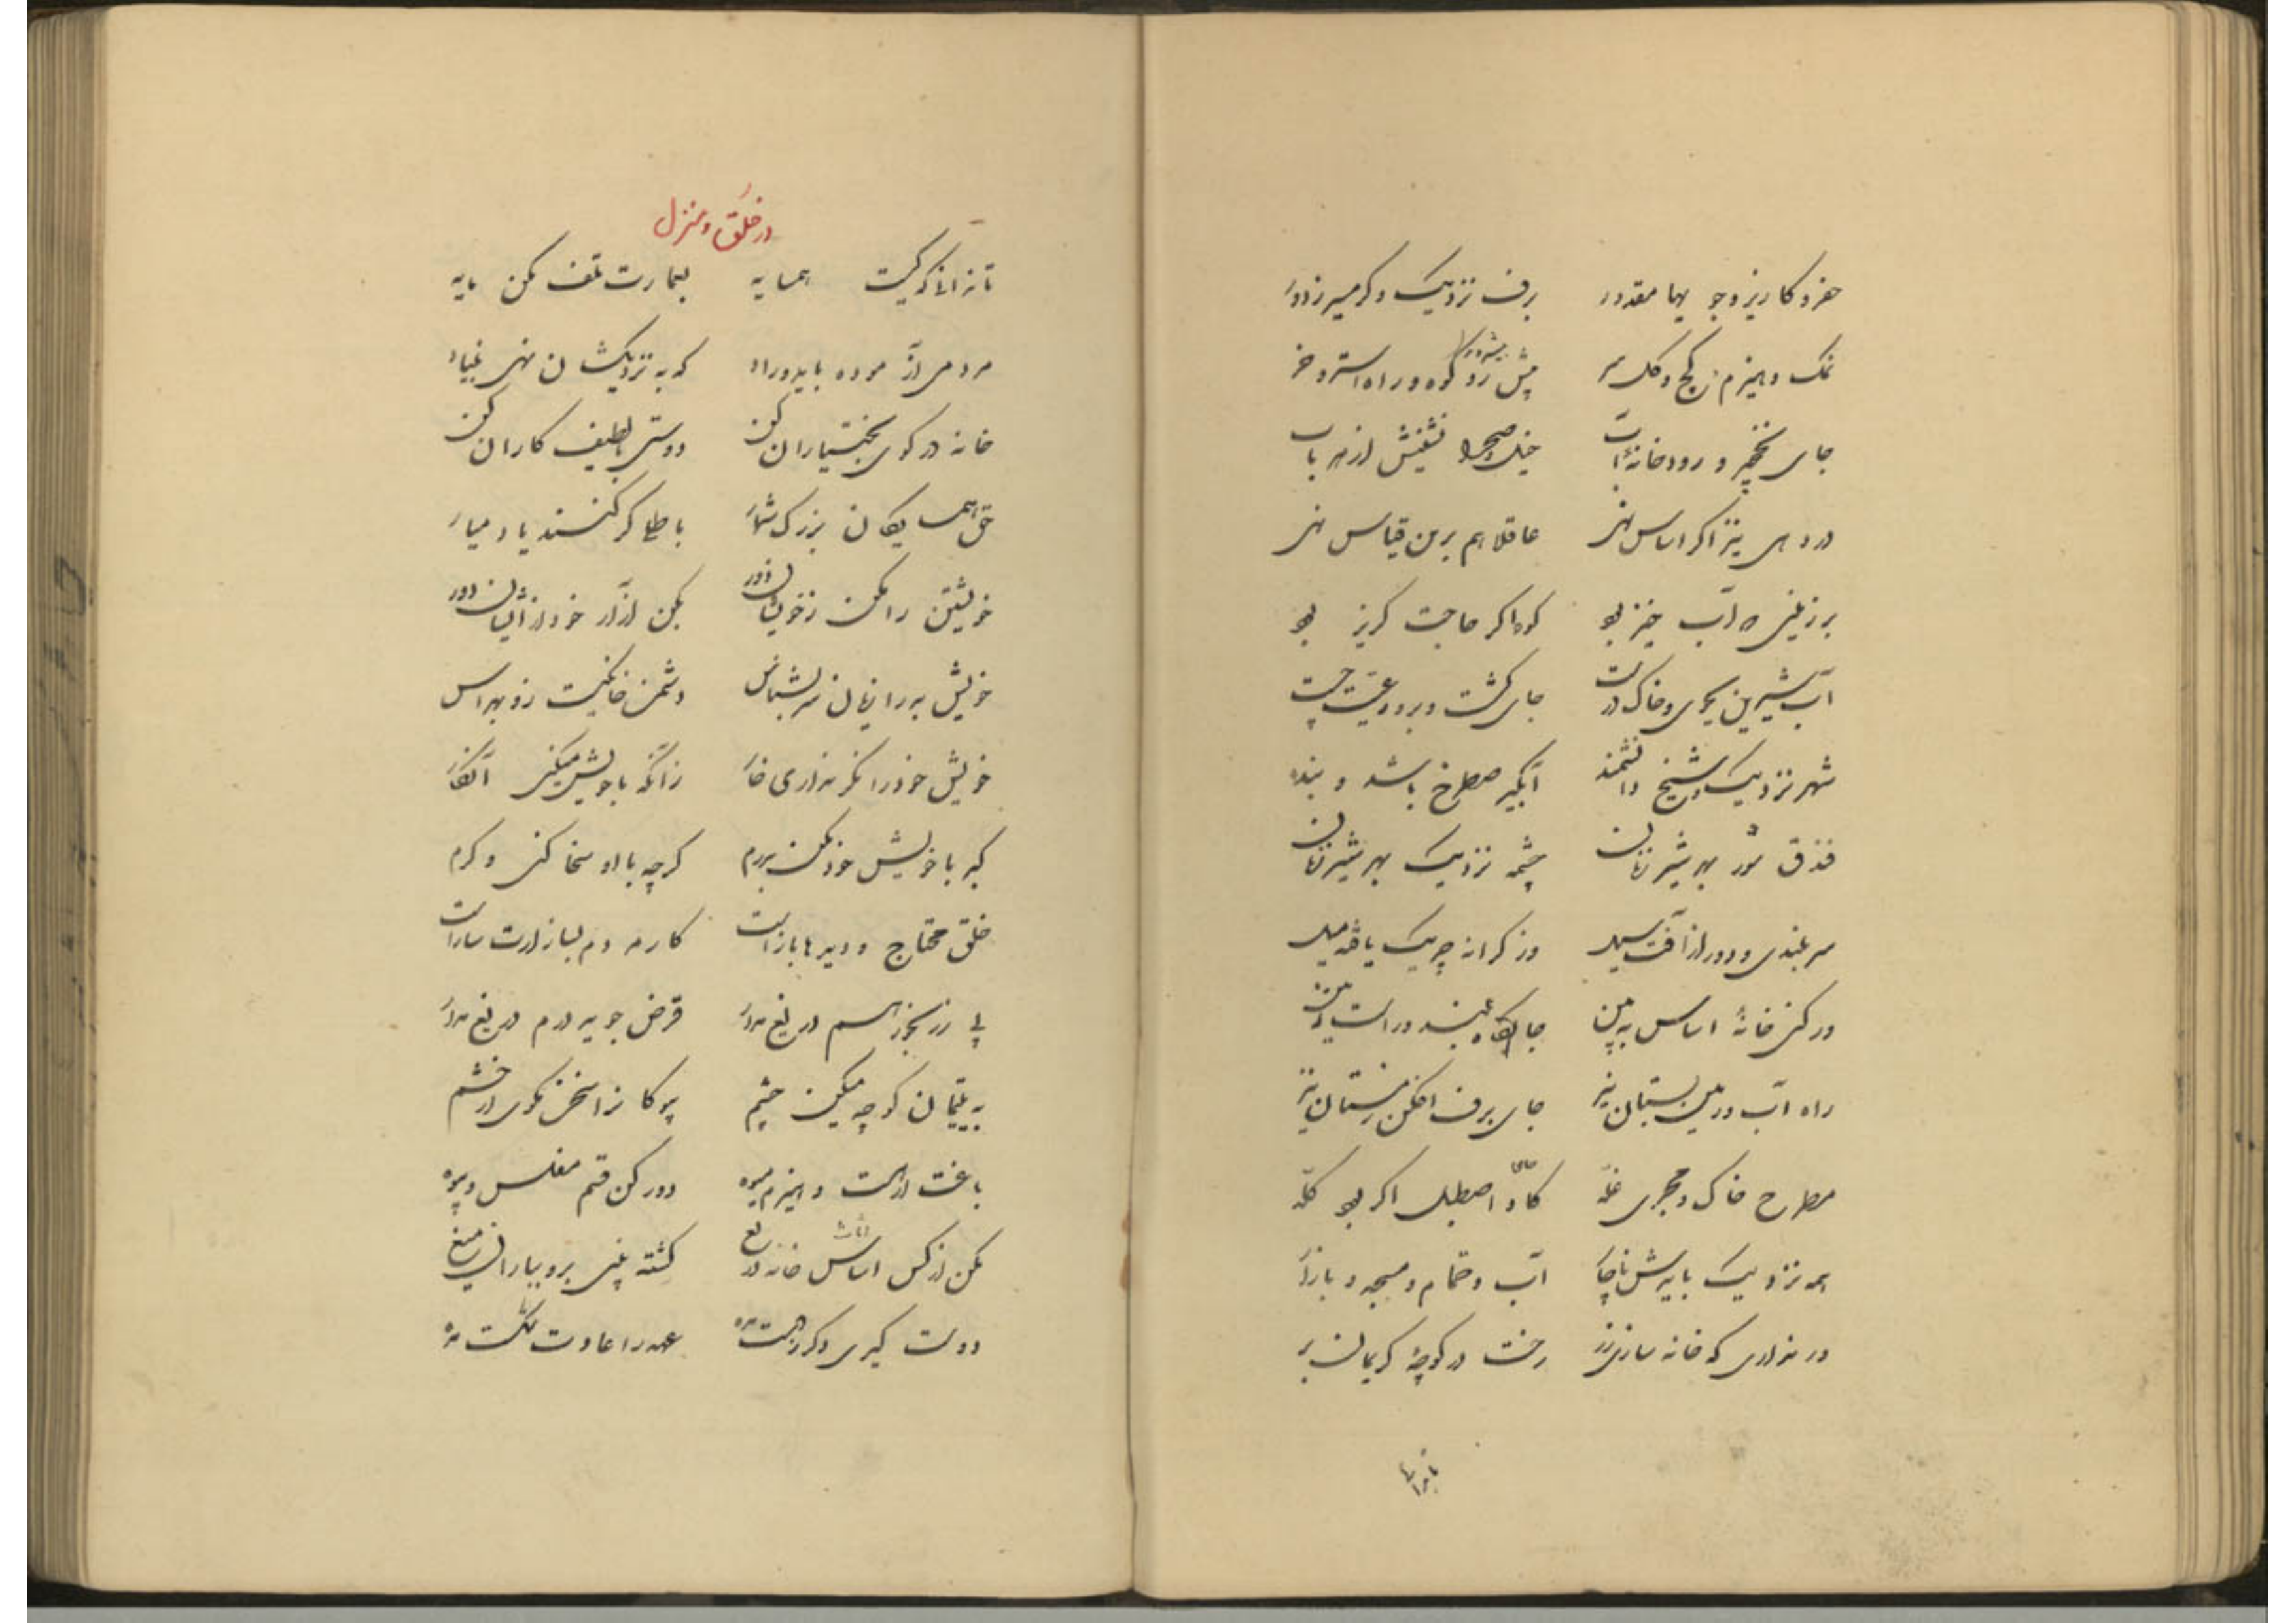 حفر و کاریز و جو بها مقدور برف نزدیک و گرمسیر نه دور
نمک و هیزم و گچ و گل سر پیش رو کوه و راه استر و خر
پیشه ور
جای نخچیر و رودخانهٔ آب خیل صحرا نشینش از هر باب
در دهی نیز اگر اساس نهی عاقلا هم برین قیاس نهی
بر زمینی که آب خیز بود کوه اگر حاجت گریز بود
آب شیرین بجوی و خاک درست جای کشت و درود و عیش نخست
شهر نزدیک و شیخ دانشمند آبگیر مطرح باشد و بند
فندق تر بهر شیر زنان چشمه نزدیک بهر شیر زنان
سر بلندی و دور از آفت سیل وز کرانه چریک یافه میل
ور کنی خانهٔ اساس به بین جایگاه بلند و راست
راه آب و زمین بستان نیز جای برف افکن زمستان نیز
مطرح خاک و مجری غله کاه و اصطبل اگر بود گله
جای
همه نزدیک بایدش ناچار آب و حمام و مسجد و بازار
ور نداری که خانه سازی زر رخت در کوچهٔ کریمان بر
تا ندانی
در خلق و منزل
تا ندانی که کیست همسایه بعمارت تلف مکن مایه
مردمی آزموده باید و راد که به نزدیکشان نهی بنیاد
خانه در کوی بختیاران کن دوستی با لطیف کاران کن
حق همسایگان بزرگ شمار باطلی گر کنند یاد میار
خویشتن را مکن ز خویشان دور مکن آزار خود از ایشان دور
خویش بد را زیان نه سر بشناس دشمن خانگیست زو بهراس
خویش خود را مگر نداری خوار زانکه با خویش میکنی آنکار
کبر با خویش خود مکن بدرم گرچه با او سخا کنی و کرم
خلق محتاج و دیرها بازست کار مردم بساز ارت سازست
پی ز رنجور اسم دریغ مدار قرض جو به درم دریغ مدار
به یتیمان کوچه میکن چشم بیوگانرا سخن مگوی از خشم
باغت ار هست و هیزم و میوه دور کن قسم مفلس و بیوه
مکن از کس اساس خانه دریغ کشته بینی برو بباران میغ
اثاث
دوست گیری و گر دهت مده عهد را عادت شکست مده